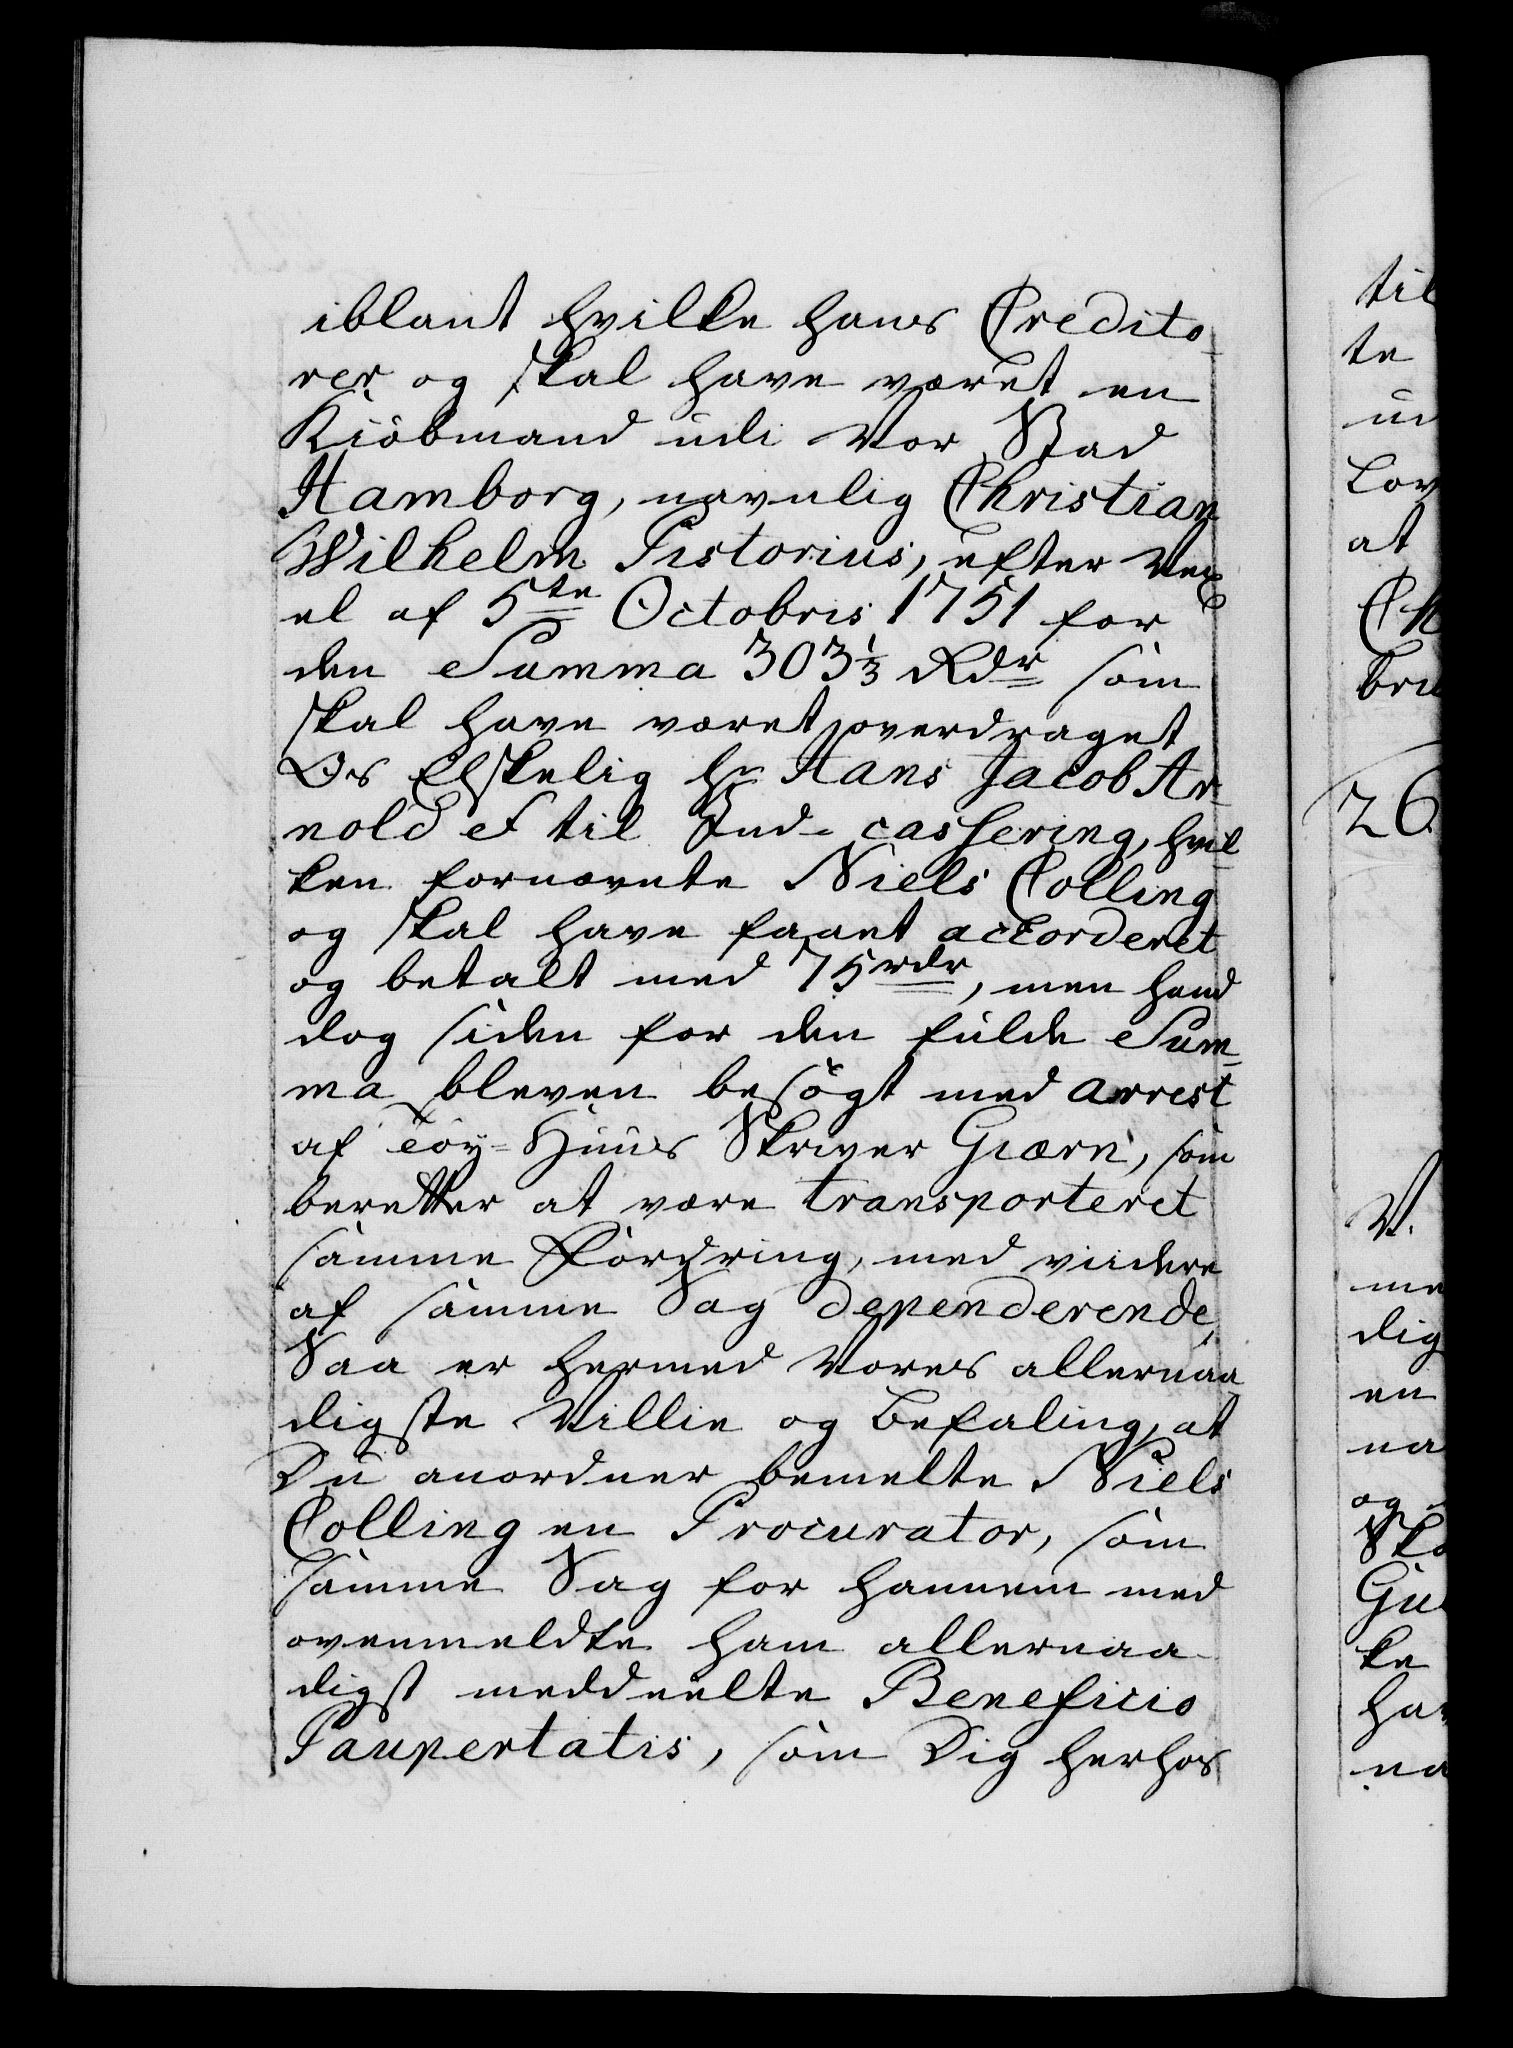 iblant hvilke hans Credito-
rer og skal have været en
Kiöbmand udi Vor Stad
Hamborg, navnlig Christian
Wilhelm Pistorius, efter Vex
el af 5te Octobris 1751 for
den Summa 303 1/3 Rdr som
skal have været overdraget
Os Elskelig Hr Hans Jacob Ar-
nold til Ind- cassering, hvil
ken fornævnte Niels Colling
og skal have faaet accorderet
og betalt med 75 rdr, men hand
dog siden for den fulde Sum-
ma bleven besögt med arrest
af Töy-Huus Skriver Giærn, som
beretter at være transporteret
samme Fordring, med viidere
af samme Sag dependerende,
Saa er hermed Vores allernaa
digste Villie og Befaling, at
Du anordner bemelte Niels
Colling en Procurator, som
samme Sag for hannem med
ovenmeldte ham allernaa-
digst meddeelte Beneficio
Paupertatis, som Dig herhos
til
te
ud
Lov
at
Ch
bru
26
V.
me
dig
en
na
og
Ska
Gu
ke
ha
na